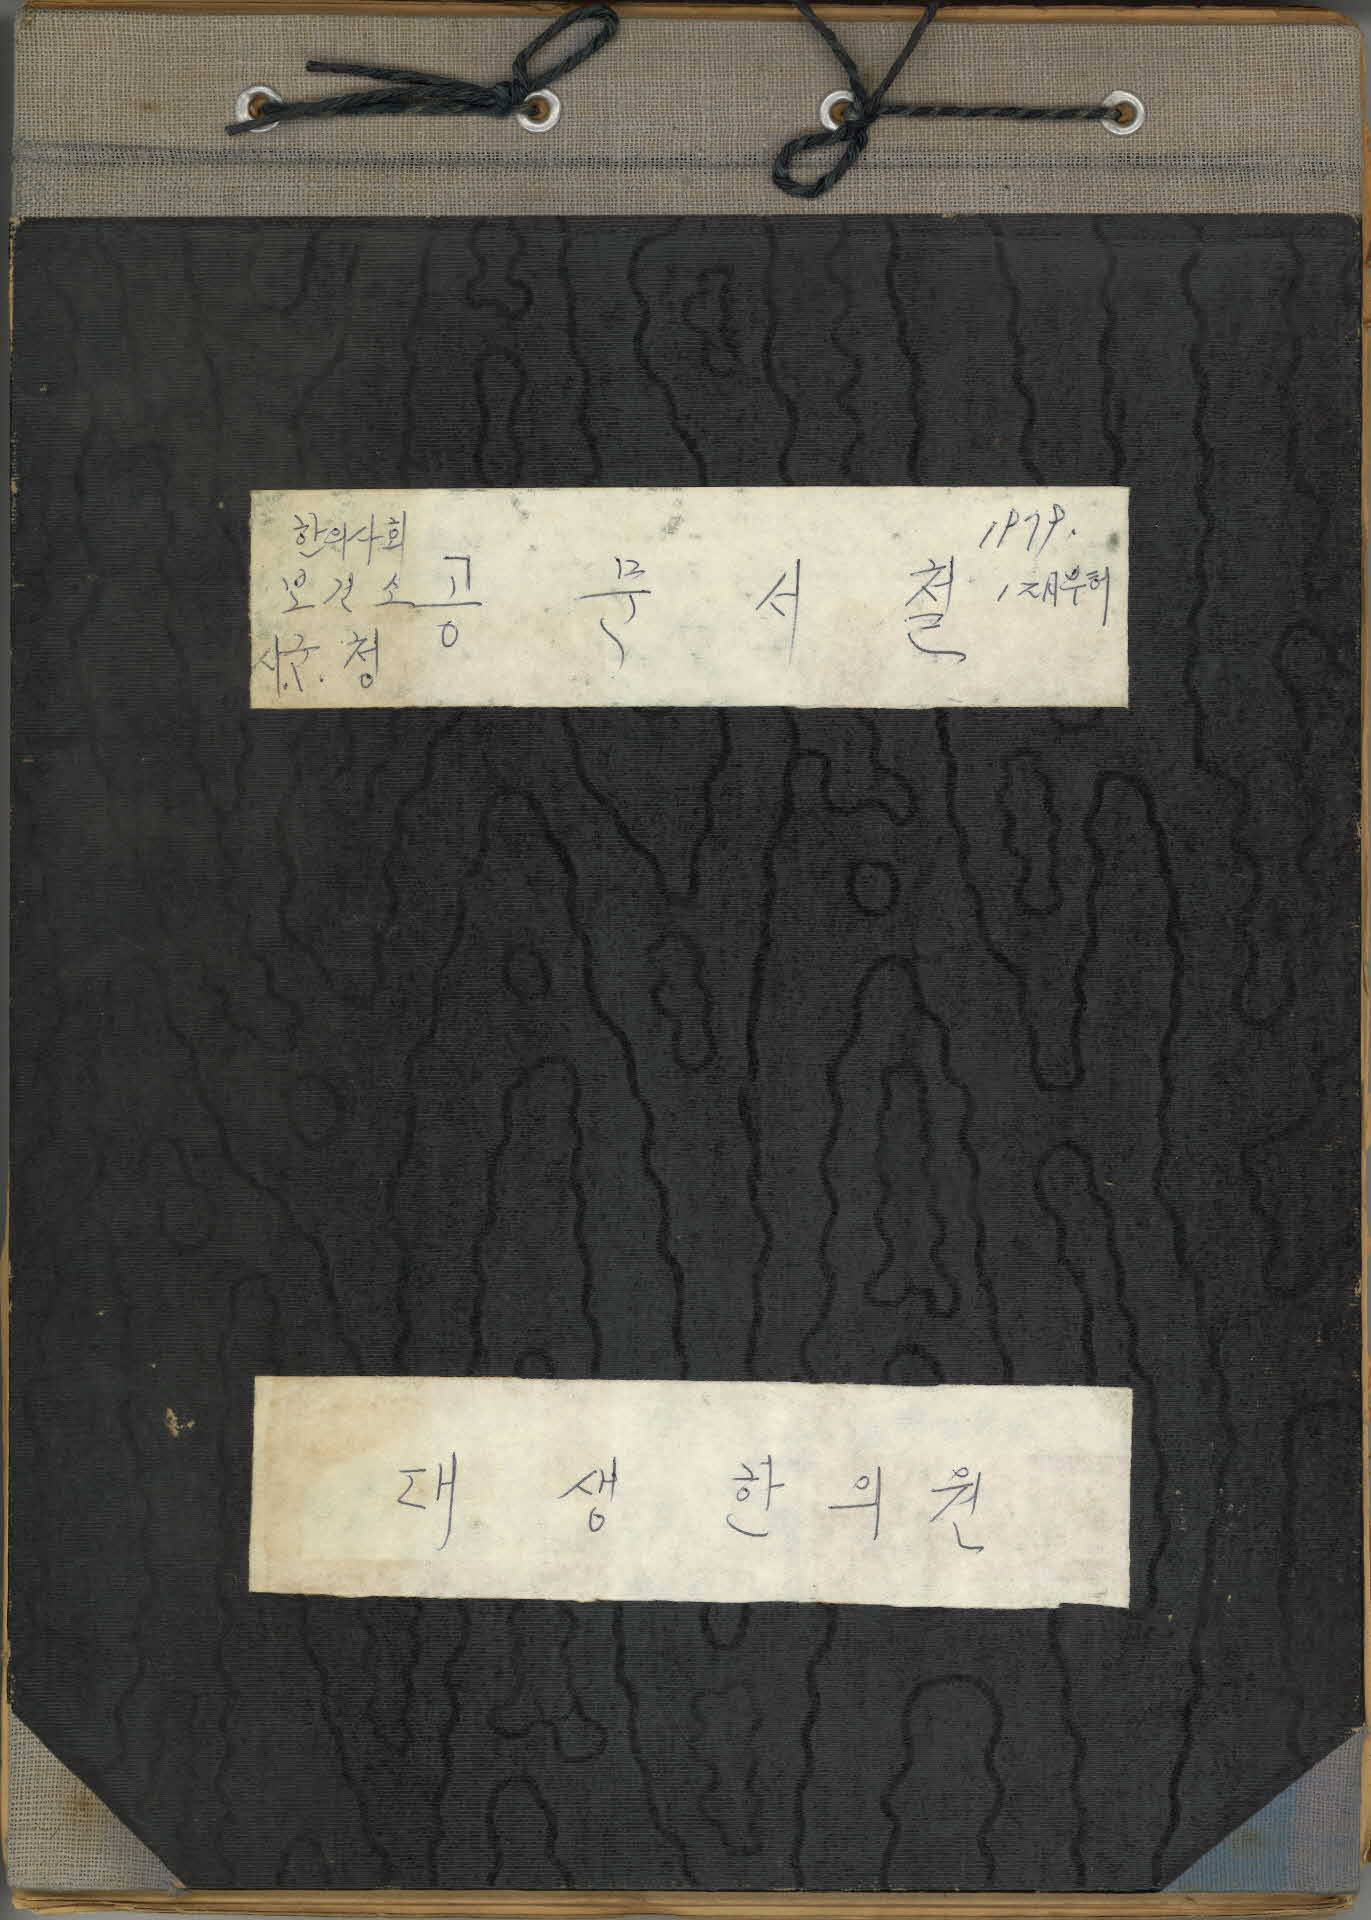 한의사회
보건소
시.군.청
공문서철
1979.
대생한의원